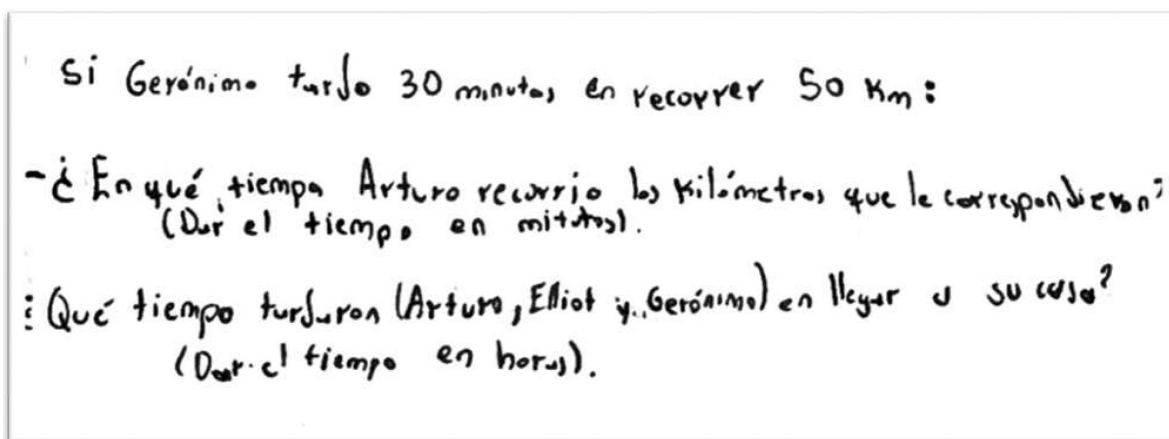 Si Gerónimo tardo 30 minutos en recorrer 50 Km:
- ¿En qué tiempo Arturo recorrio los Kilómetros que le correspondieron?
(Dar el tiempo en mitutos).
¿Qué tiempo tardaron (Arturo, Elliot y Gerónimo) en llegar a su casa?
(Dar el tiempo en horas).